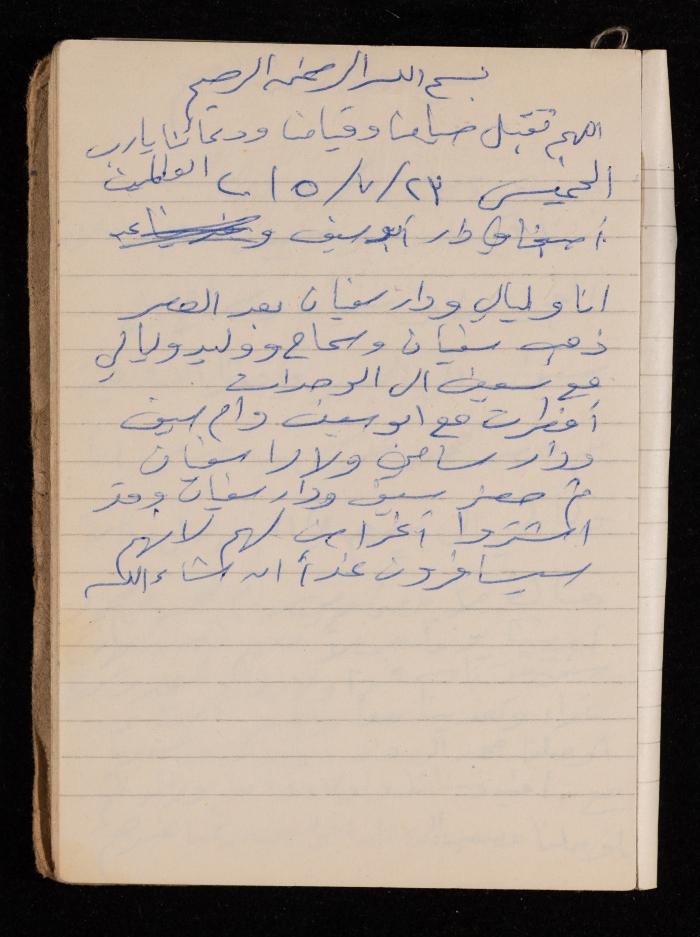 بسم الله الرحمن الرحيم
اللهم تقبل صيامنا وقيامنا ودعائنا يارب
العالمين
الخميس ٢٣/٧/٢٠١٥
دار أبو سيف و
انا وليالي ودار سفيان بعد العصر
ذهب سفيان وسماح ووليد وليالي
مع سيف الى الوحدات
أفطرت مع ابو سيف وام سيف
ودار سامي ولارا سفيان
ثم حضر سيف ودار سفيان وقد
اشتروا أغراض لهم لانهم
سيسافرون غداً ان شاء الله